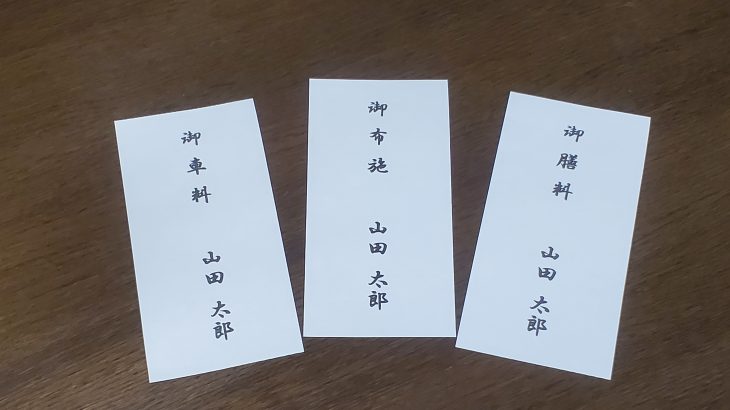 御車料
山田 太郎
御布施
山田 太郎
御膳料
山田 太郎